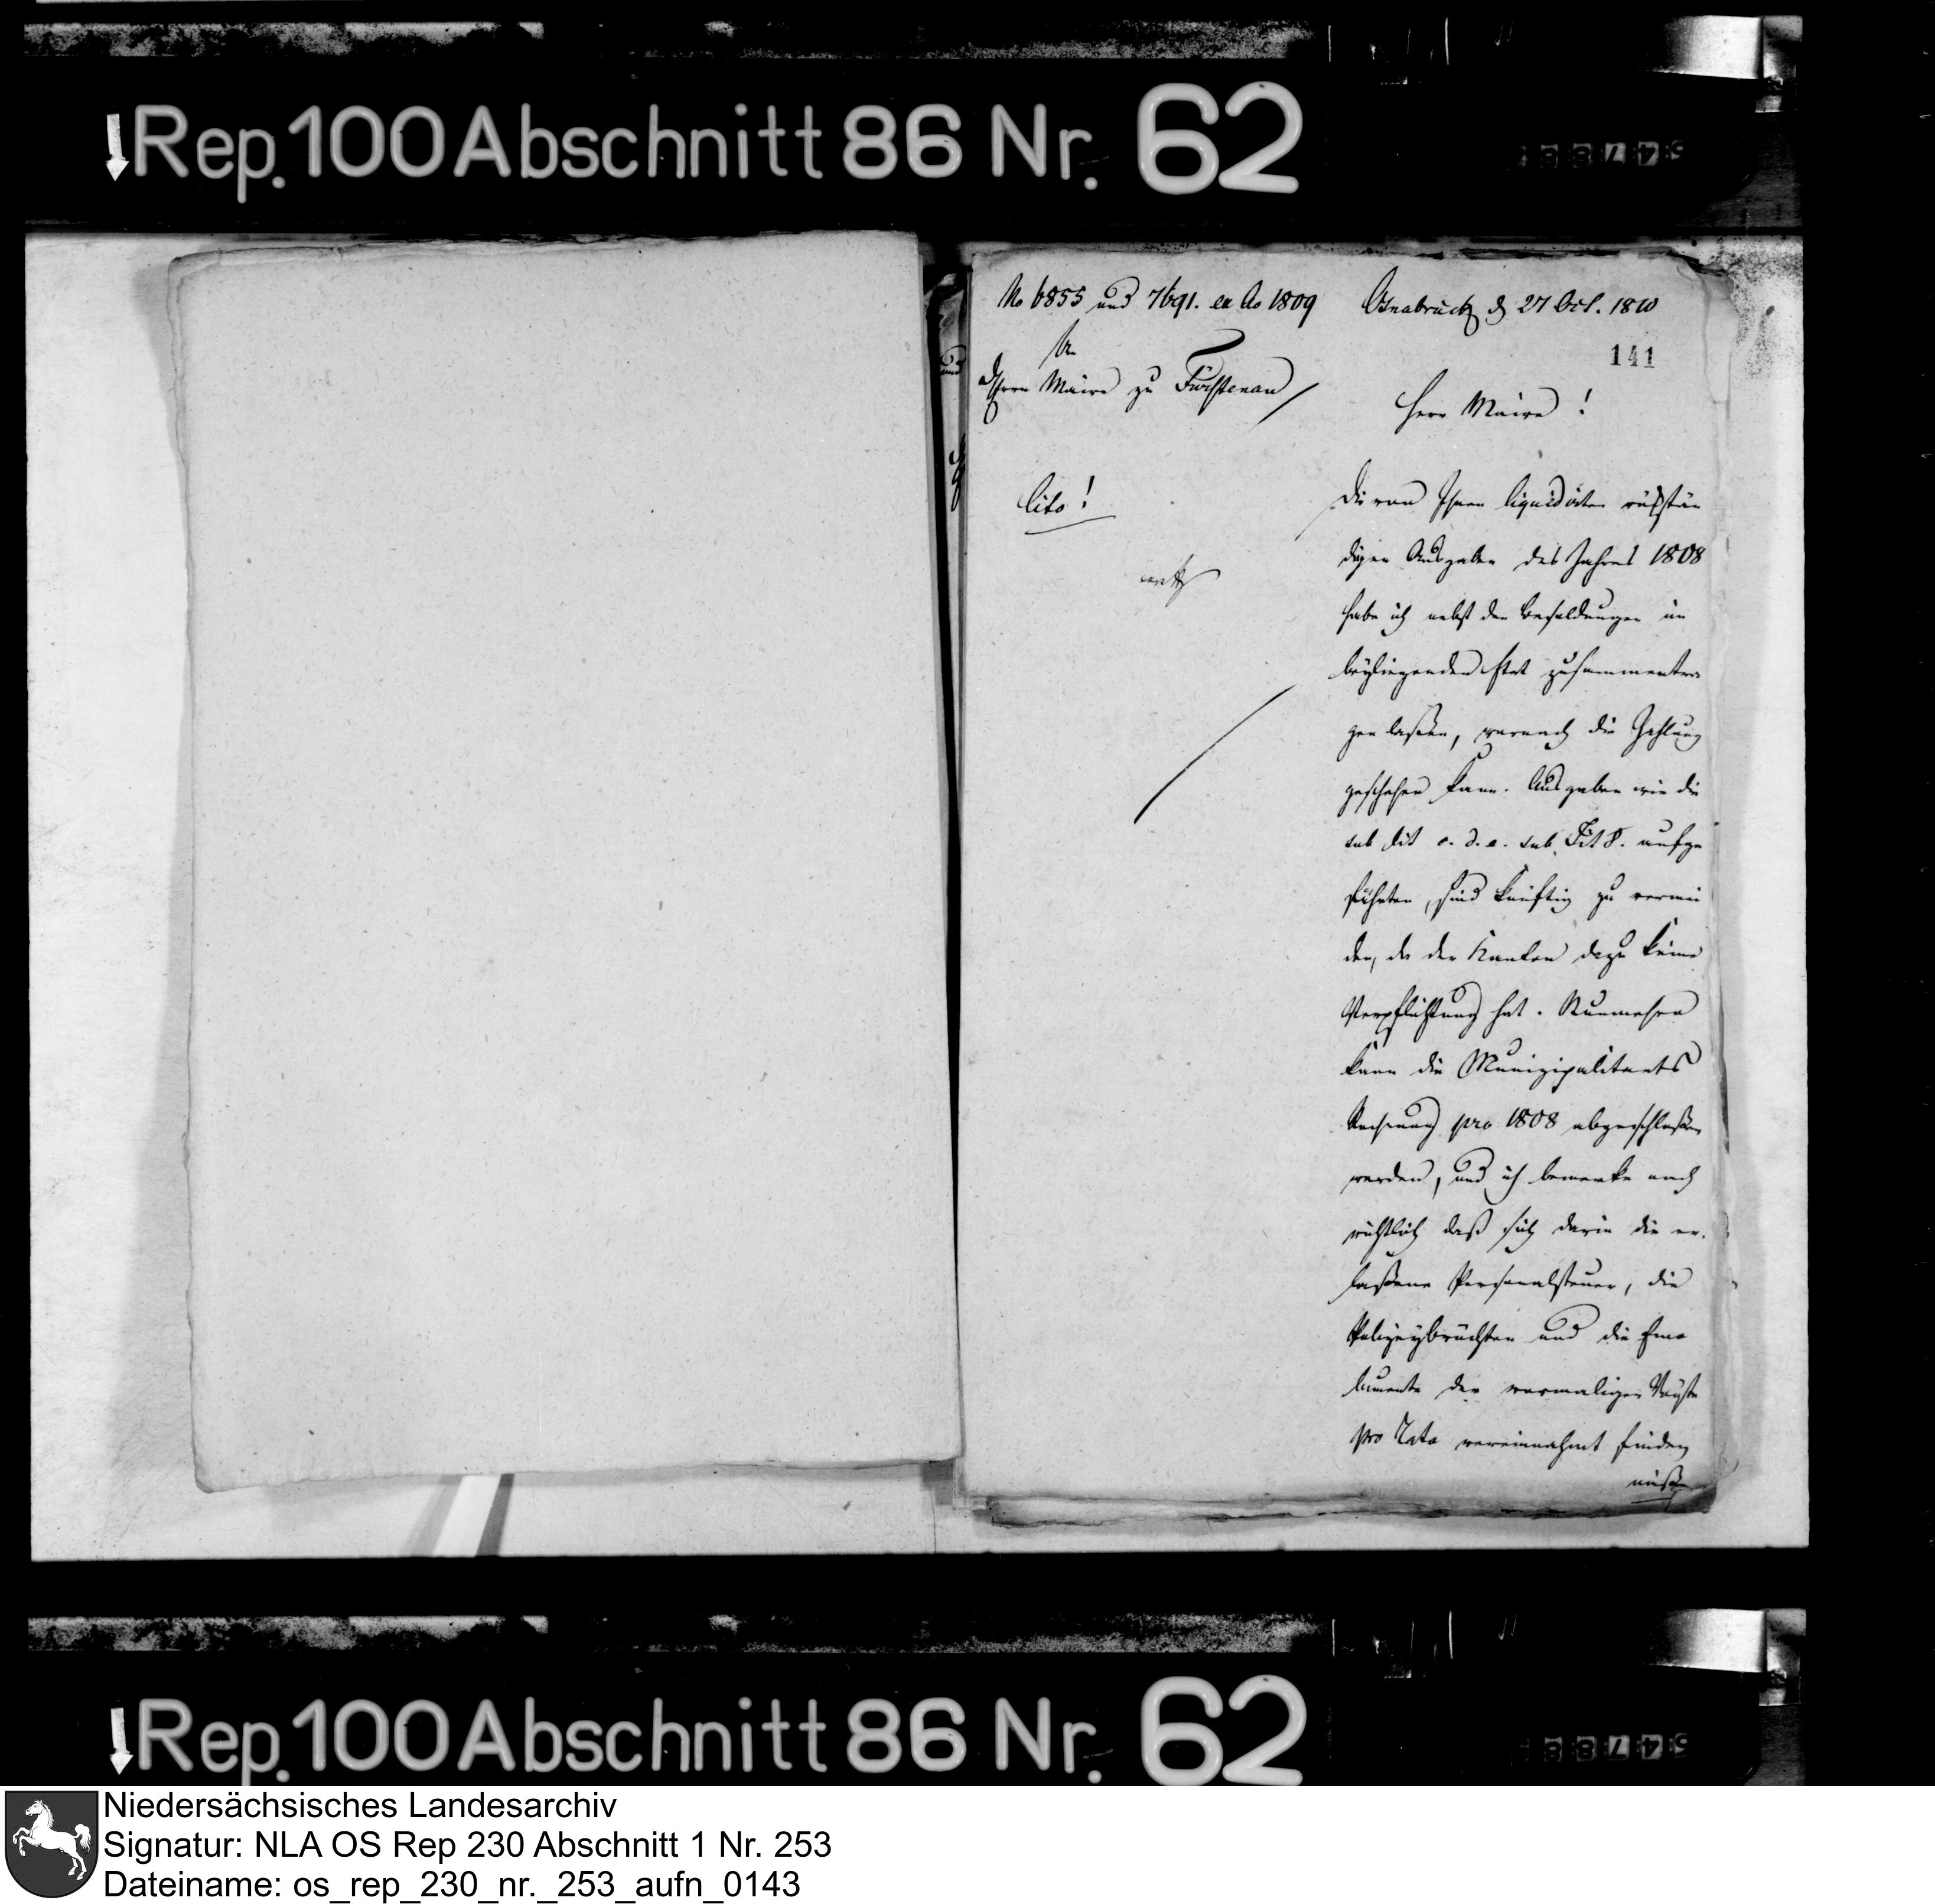 Rep. 100 Abschnitt 86 Nr. 62
No 6855 und 7691. ex Ao 1809
Osnabrück d 27 Oct. 1810
141
An
d Herrn Maire zu Fürstenau
Herr Maire!
Cito!
Die von Ihnen liquidirten rückstän
digen Ausgaben des Jahres 1808
habe ich nebst den Besoldungen im
beyliegenden Etat zusammentra
gen laßen, wornach die Zahlung
geschehen kann. Ausgaben wie die
sub Lit c. d. e. sub Tit 8. aufge
führten, sind künftig zu vermei
den, da der Kanton dazu keine
Verpflichtung hat. Nunmehro
kann die Munizipalitaets
Rechnung pro 1808 abgeschloßen
werden, und ich bemerke nach
richtlich daß sich darin die er-
laßene Personalsteuer, die
Polizeybrüchten und die Emo
lumente der vormaligen Vögte
pro rata vereinnahmt finden
müßen
Rep. 100 Abschnitt 86 Nr. 62
Niedersächsisches Landesarchiv
Signatur: NLA OS Rep 230 Abschnitt 1 Nr. 253
Dateiname: os_rep_230_nr._253_aufn_0143